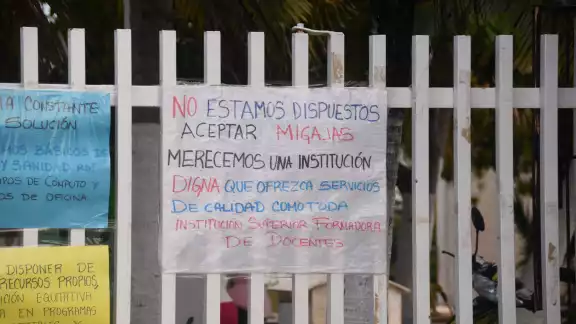 A CONSTANTE
SOLUCIÓN
BÁSICOS DE
Y SANIDAD
DE CÓMPUTO Y
DE OFICINA
NO ESTAMOS DISPUESTOS
ACEPTAR MIGAJAS
MERECEMOS UNA INSTITUCIÓN
DIGNA QUE OFREZCA SERVICIOS
DE CALIDAD COMO TODA
INSTITUCIÓN SUPERIOR FORMADORA
DE DOCENTES
DISPONER DE
RECURSOS PROPIOS,
EQUITATIVA
EN PROGRAMAS